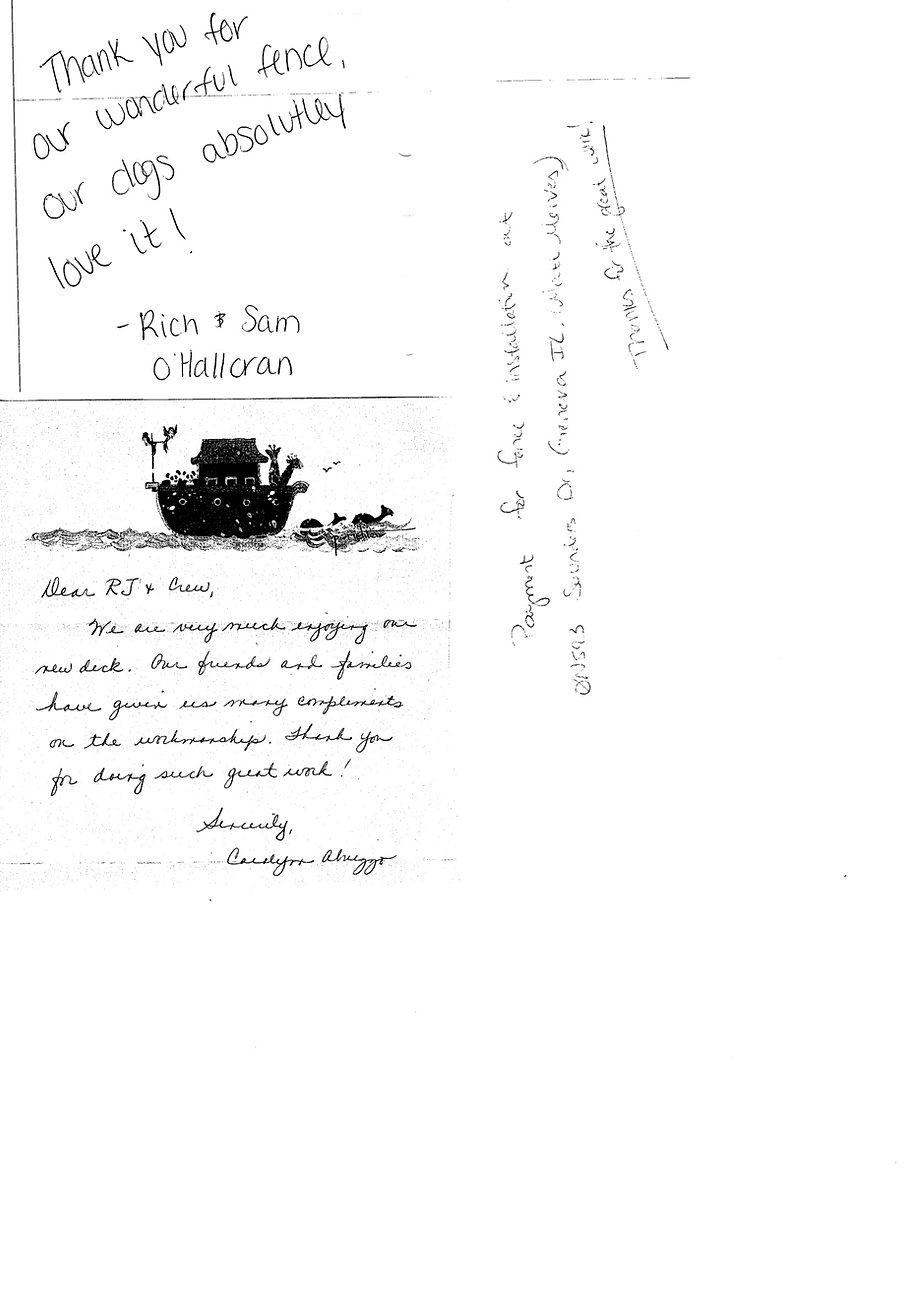 Thank you for
our wonderful fence,
our dogs absolutley
love it!
- Rich & Sam
O'Halloran
Dear RJ & Crew,
We are very much enjoying our
new deck. Our friends and families
have given us many compliments
on the workmanship. Thank you
for doing such great work!
Sincerely,
Carolynn Abruzzo
Payment for fence & installation out
Saunders Dr, Geneva IL. (Matt
Thanks for the great work!